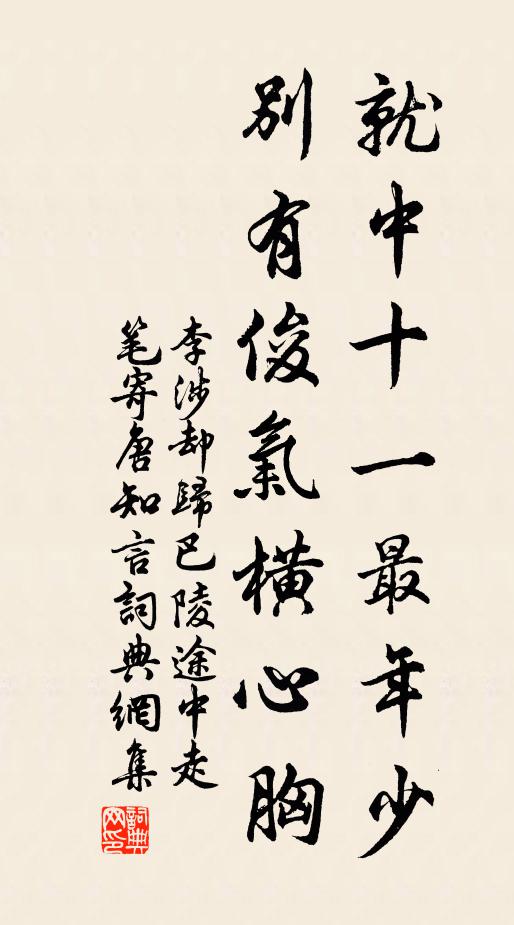 就中十一最年少
別有俊氣橫心胸
李涉却歸巴陵途中走
笔寄唐知言詞典網集
詞典網印